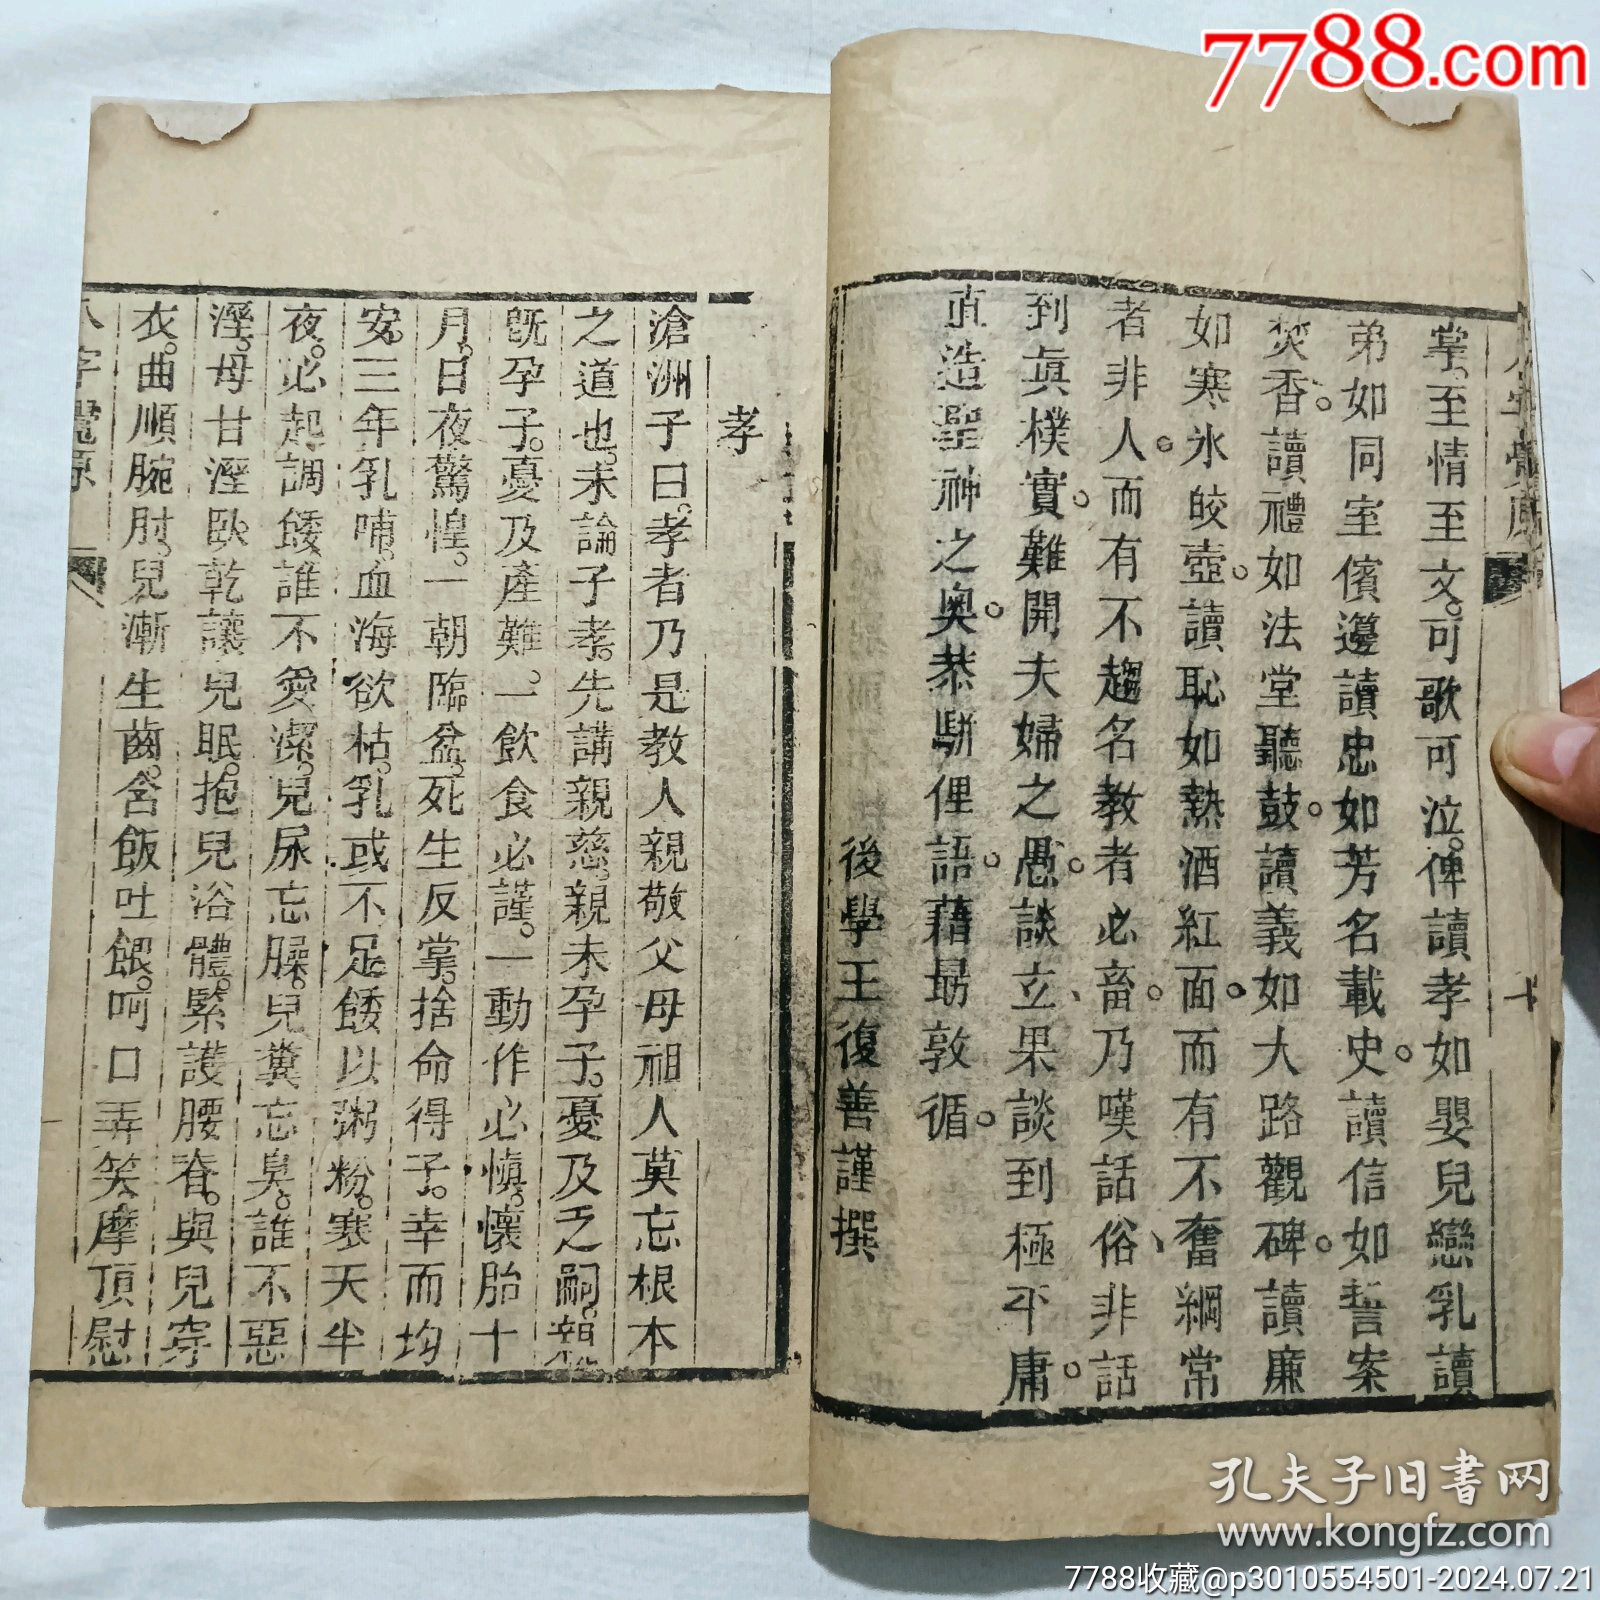 7788.com
掌、至情至文。可歌可泣。俾讀孝如嬰兒戀乳讀
弟如同室儐籩讀忠如芳名載史。讀信如誓案
焚香。讀禮如法堂聽鼓。讀義如大路觀碑。讀廉
如寒冰皎壺。讀恥如熱酒紅面。而有不奮綱常
者非人。而有不趨名教者必畜。乃嘆話俗、非話
到眞樸實。難開夫婦之愚。談立果談到極平庸。
直造聖神之奧。恭騈俚語。藉勗敦循。
後學王復善謹撰
孝
滄洲子曰。孝者乃是教人親敬父母祖人莫忘根本
之道也。未論子孝。先講親慈。親未孕子。憂及乏嗣。親
旣孕子。憂及產難。一飲食必謹。一動作必愼。懷胎十
月。日夜驚惶。一朝臨盆。死生反掌。捨命得子。幸而均
安。三年乳哺。血海欲枯。乳或不足餧以粥粉。寒天半
夜。必起調餧誰不愛潔。兒尿忘臊。兒糞忘臭。誰不惡
溼。母甘溼臥乾讓兒眠。抱兒浴體。緊護腰脊。與兒穿
衣。曲順腕肘。兒漸生齒。含飯吐餵。呵口弄笑摩頂慰
八字覺原
孔夫子旧书网
www.kongfz.com
7788收藏@p3010554501-2024.07.21